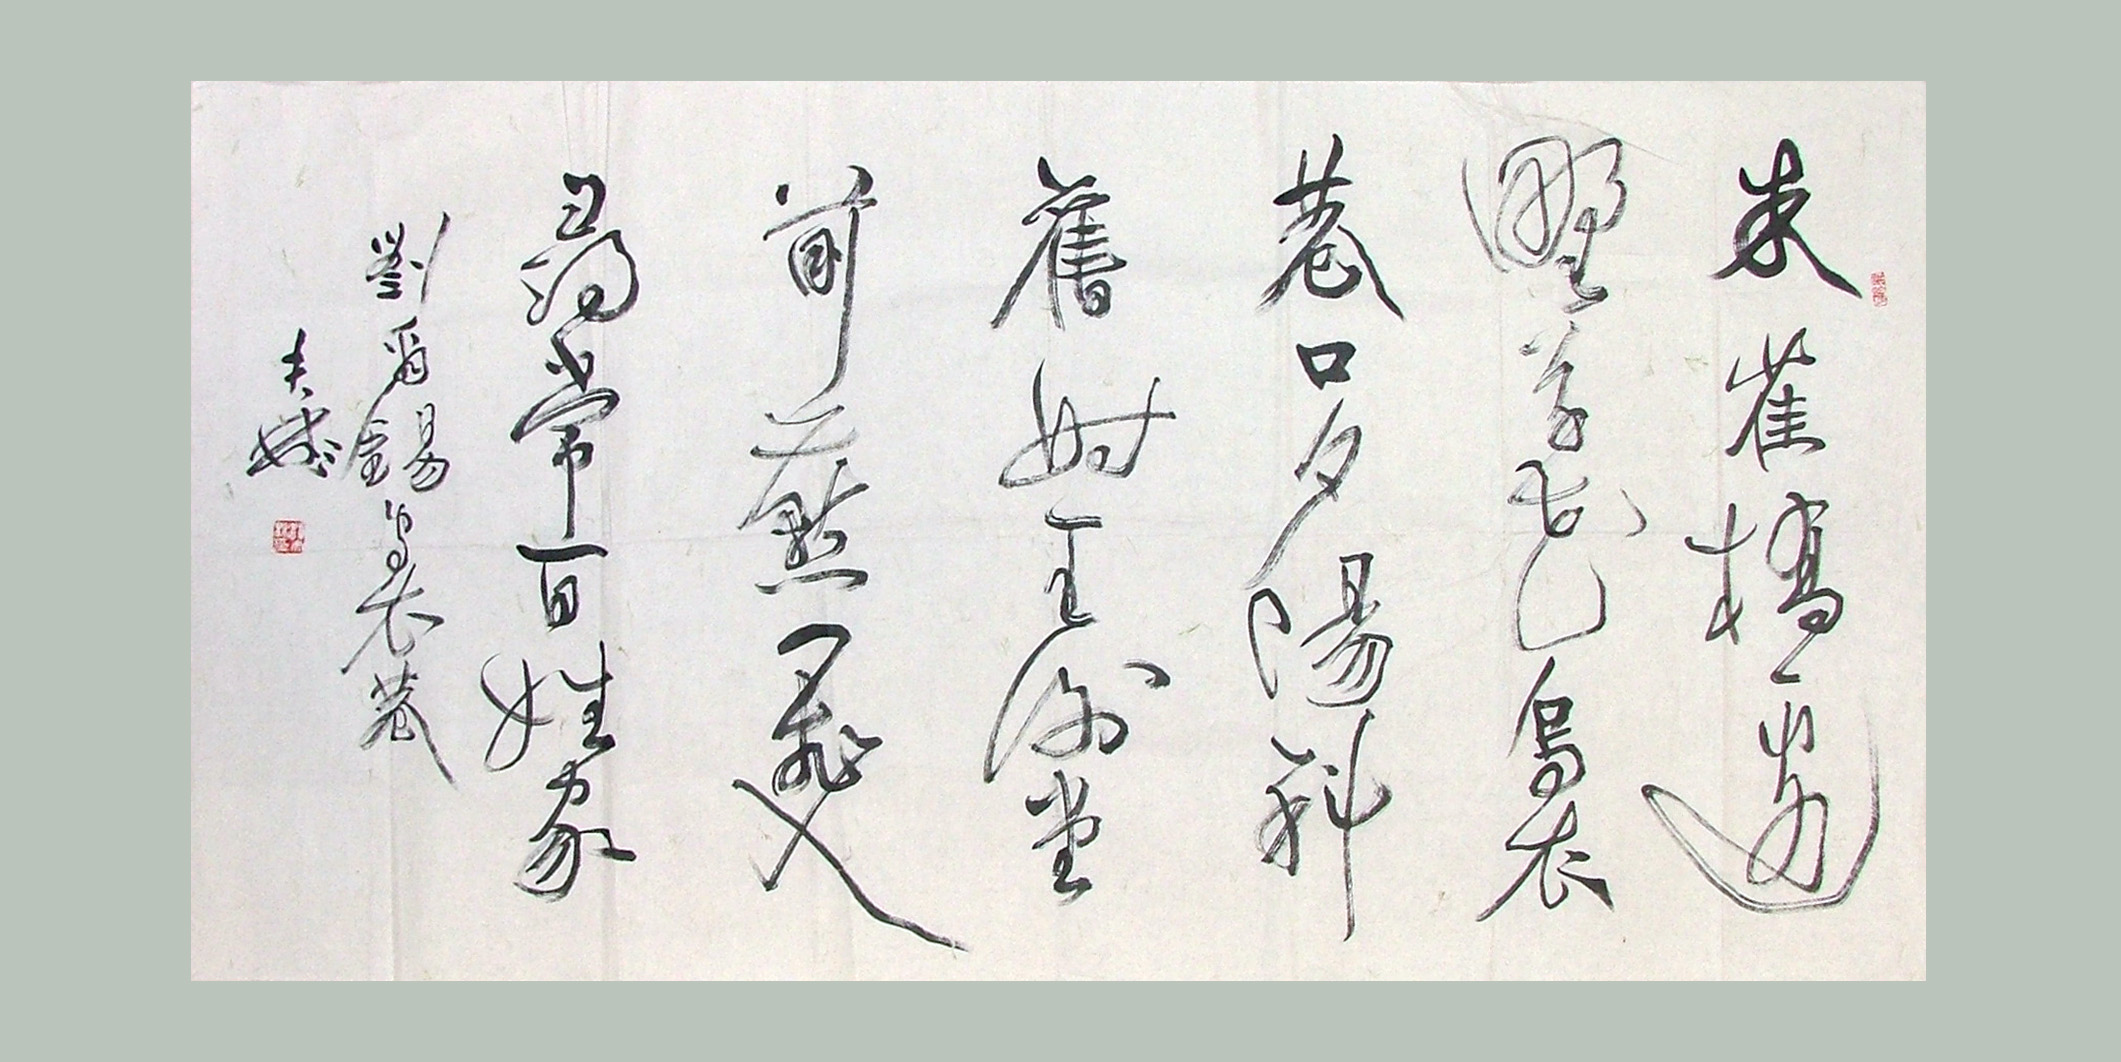 朱雀橋邊
野草花烏衣
巷口夕陽斜
舊時王謝堂
前燕飛入
尋常百姓家
劉禹錫烏衣巷